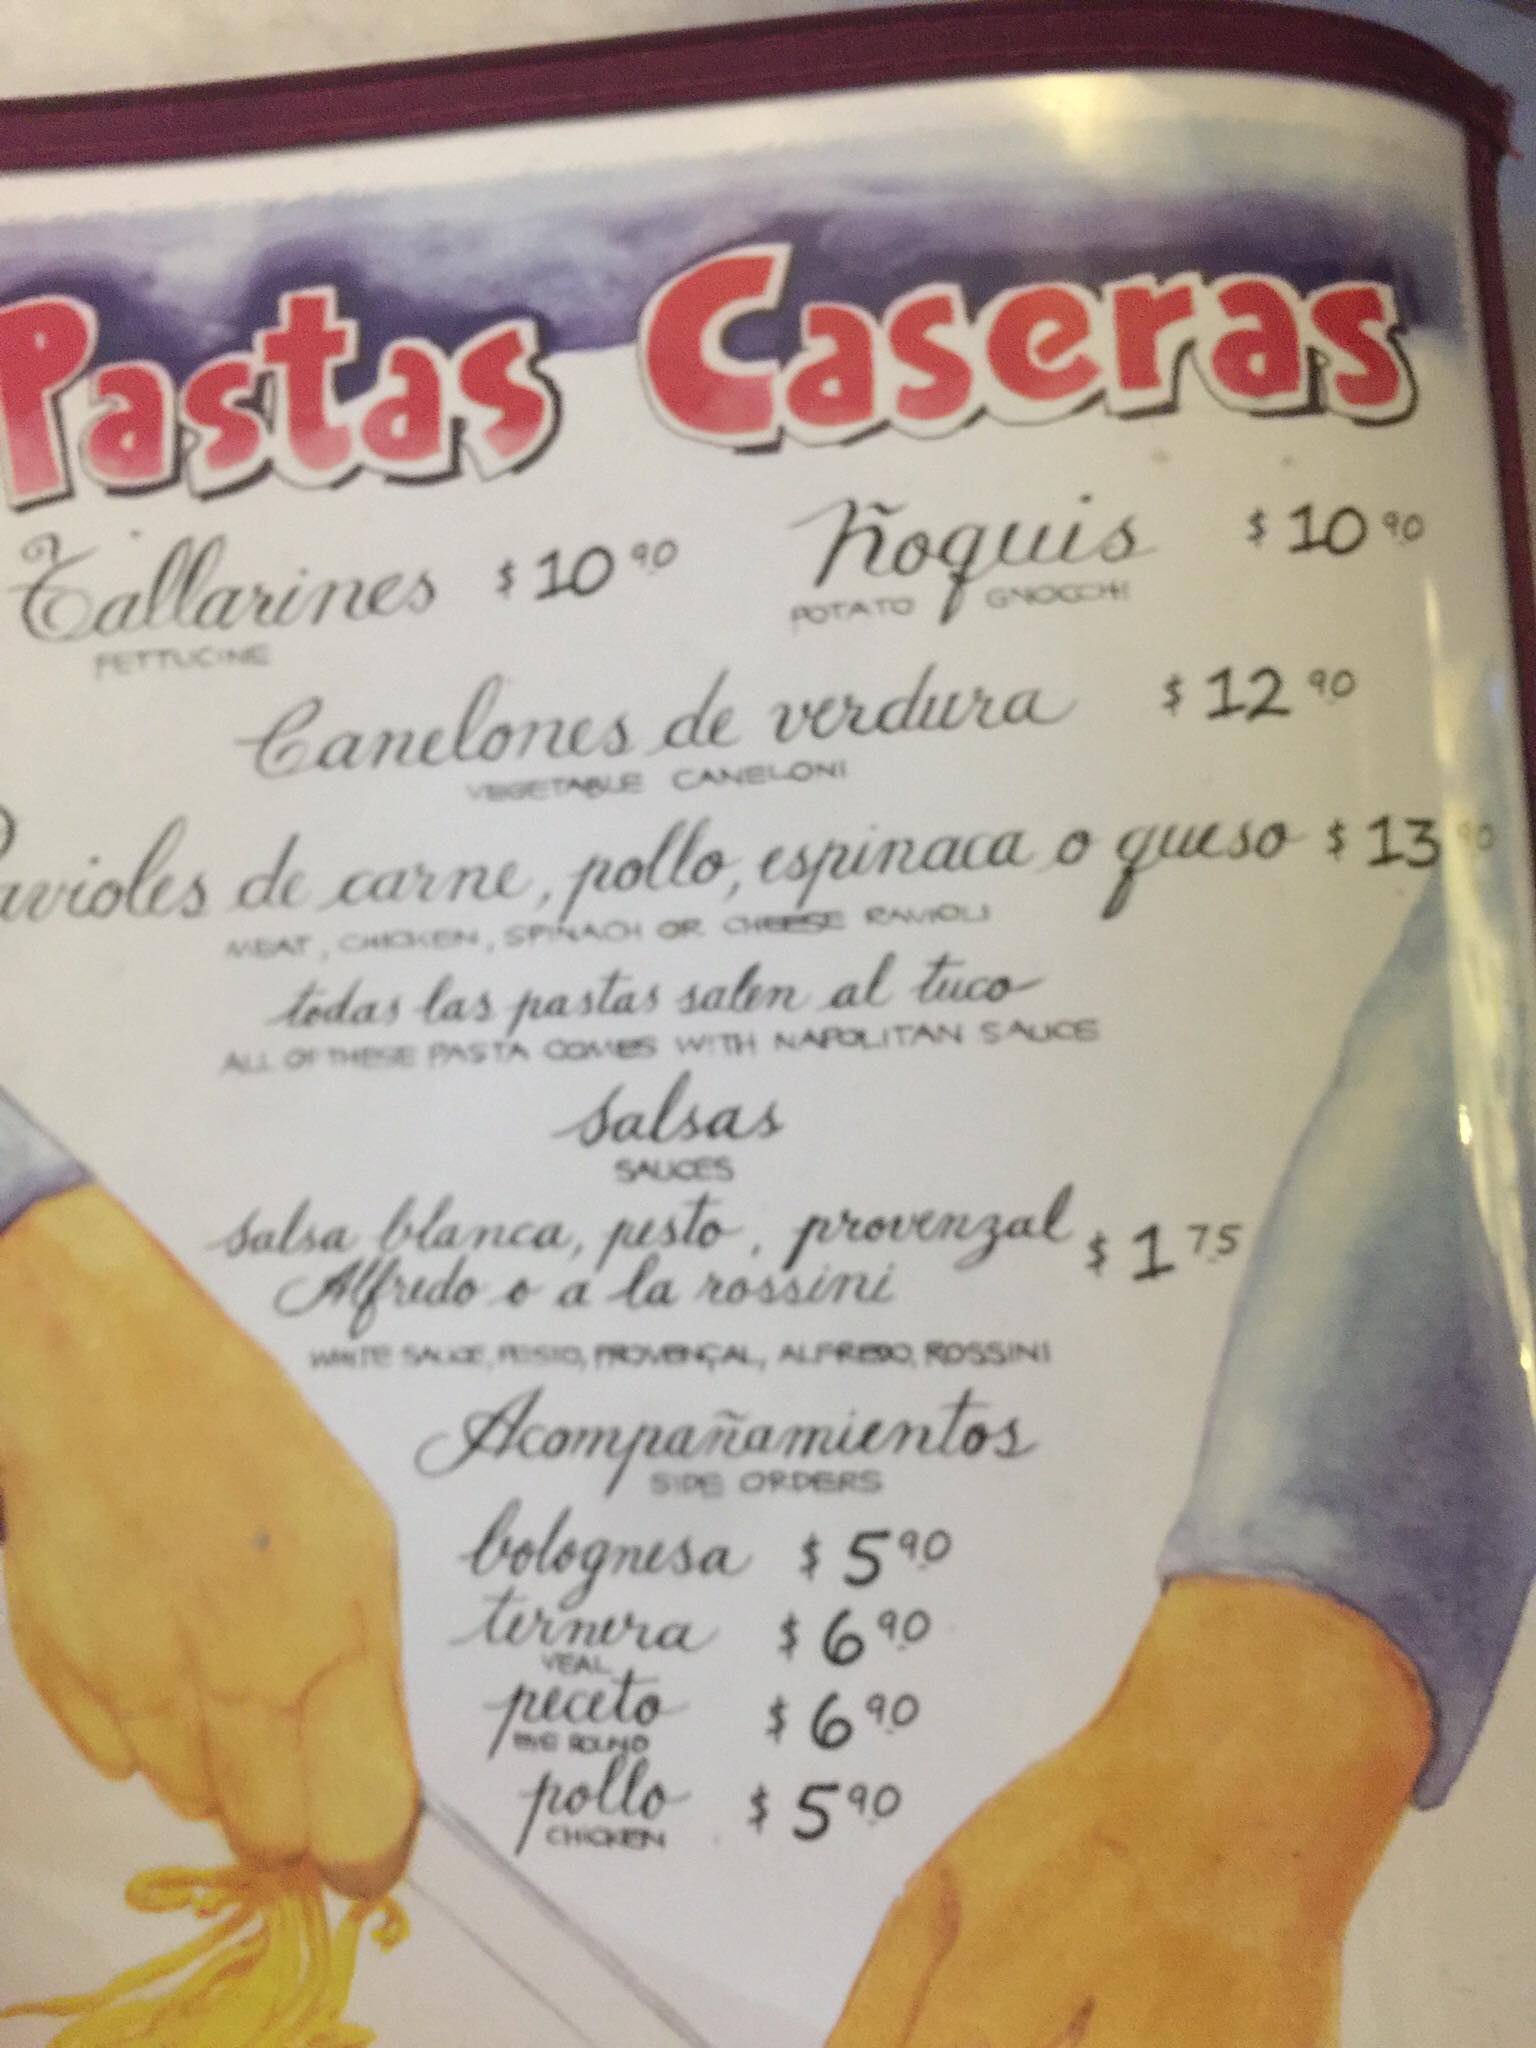 Pastas Caseras
Tallarines $10.90 Ñoquis $10.90
FETTUCINE POTATO GNOCCHI
Canelones de verdura $12.90
VEGETABLE CANELONI
Ravioles de carne, pollo, espinaca o queso $13.90
MEAT, CHICKEN, SPINACH OR CHEESE RAVIOLI
todas las pastas salen al tuco
ALL OF THESE PASTA COMES WITH NAPOLITAN SAUCE
salsas
SAUCES
salsa blanca, pesto, provenzal $1.75
Alfredo o a la rossini
WHITE SAUCE, PESTO, PROVENÇAL, ALFREDO, ROSSINI
Acompañamientos
SIDE ORDERS
bolognesa $5.90
ternera $6.90
VEAL
peceto $6.90
EYE ROUND
pollo $5.90
CHICKEN